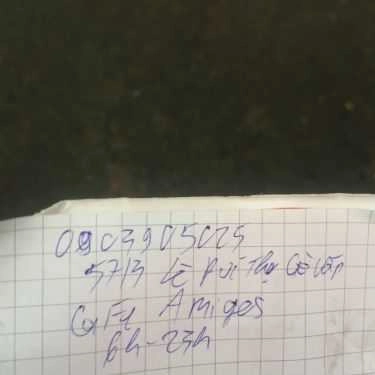 0903905025
57/3 Lê Đức Thọ Gò Vấp
Cafe Amigos
6h-23h